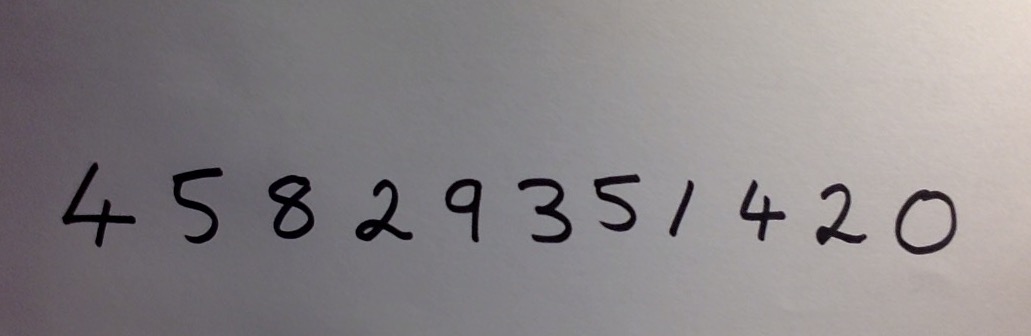 4 5 8 2 9 3 5 1 4 2 0